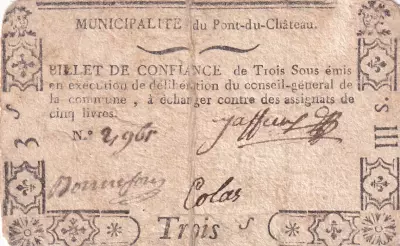 MUNICIPALITÉ du Pont-du-Château.
BILLET DE CONFIANCE de Trois Sous émis
en exécution de délibération du conseil-général de
la commune, à échanger contre des assignats de
cinq livres.
N.º 2,961
3 S
S. III
Colas
Trois S